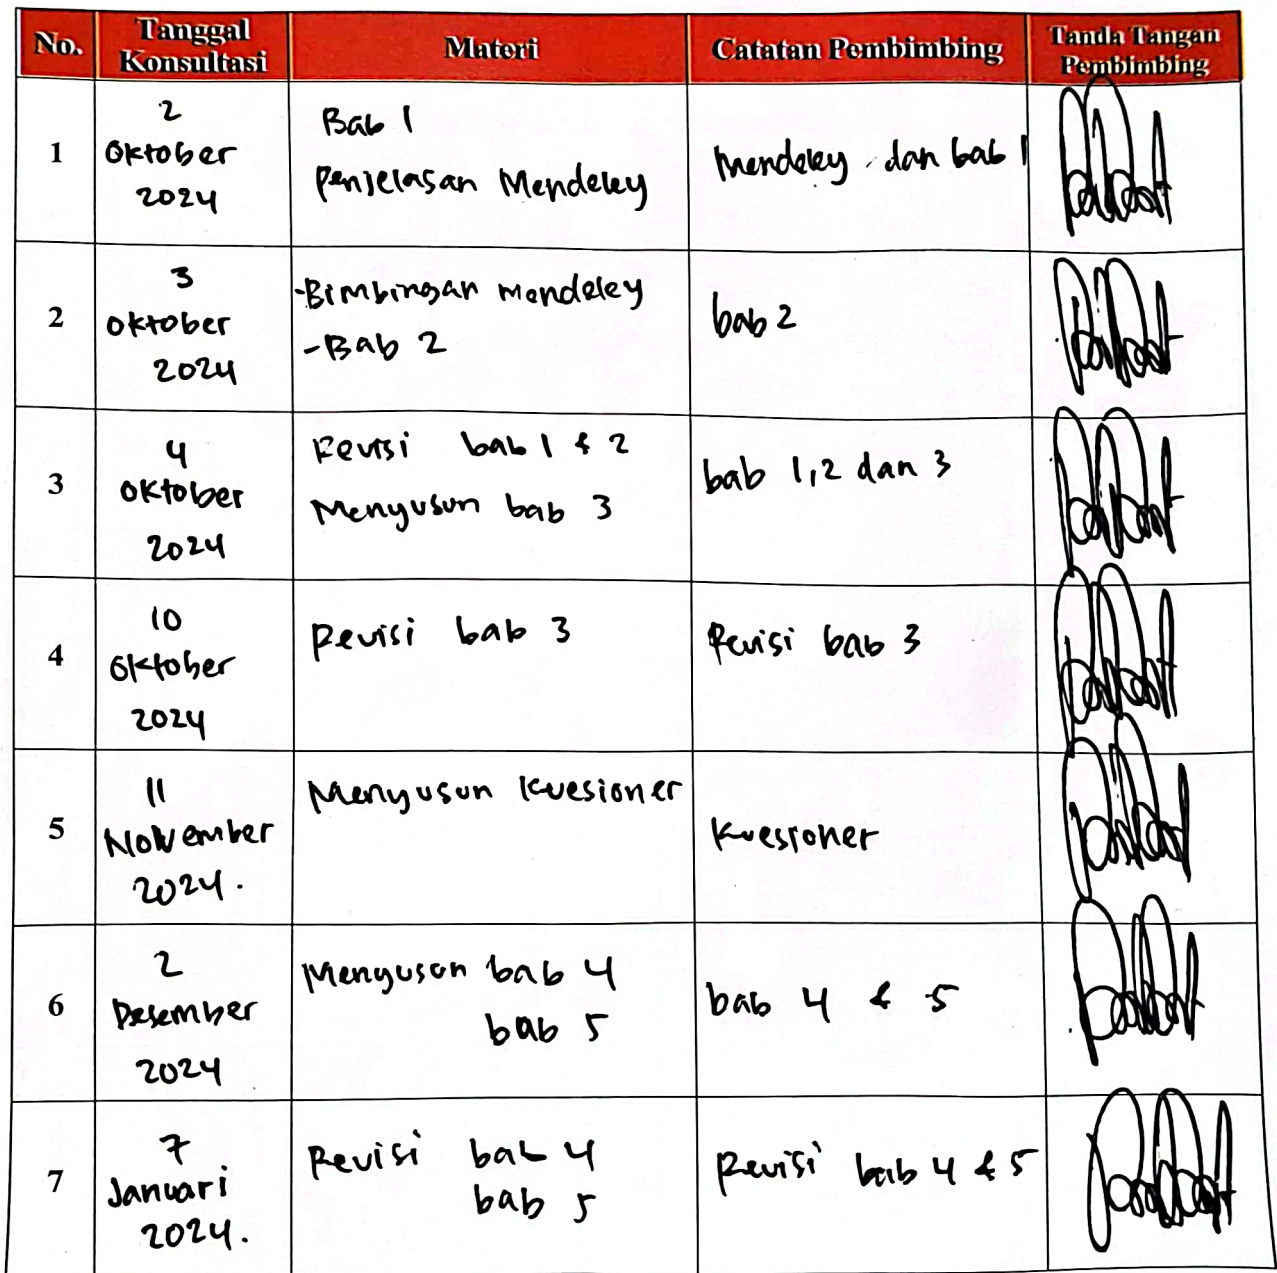 No.
Tanggal
Konsultasi
Materi
Catatan Pembimbing
Tanda Tangan
Pembimbing
1
2
Oktober
2024
Bab 1
Penjelasan Mendeley
Mendeley dan bab 1
2
3
Oktober
2024
-Bimbingan mendeley
-Bab 2
bab 2
3
4
Oktober
2024
Revisi bab 1 & 2
Menyusun bab 3
bab 1,2 dan 3
4
10
Oktober
2024
Revisi bab 3
Revisi bab 3
5
11
November
2024.
Menyusun Kuesioner
Kuesioner
6
2
Desember
2024
Menyusun bab 4
bab 5
bab 4 & 5
7
7
Januari
2024.
Revisi bab 4
bab 5
Revisi bab 4 & 5